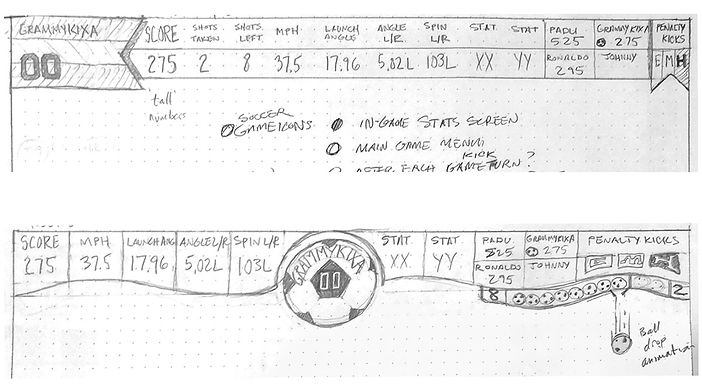 GRAMMYKIXA SCORE SHOTS TAKEN SHOTS LEFT MPH LAUNCH ANGLE ANGLE L/R SPIN L/R STAT STAT PADU 525 GRAMMYKIXA 275 PENALTY KICKS
00 275 2 8 37.5 17.96 5.02L 103L XX YY RONALDO 295 JOHNNY E M H
tall
numbers
SOCCER
GAME ICONS
IN-GAME STATS SCREEN
MAIN GAME MENU
KICK
AFTER EACH GAME TURN?
SCORE MPH LAUNCH ANG ANGLE L/R SPIN L/R GRAMMYKIXA STAT STAT PADU 525 GRAMMYKIXA 275 PENALTY KICKS
275 37.5 17.96 5.02L 103L 00 XX YY RONALDO 295 JOHNNY E M H
8 2
Ball
drop
animation